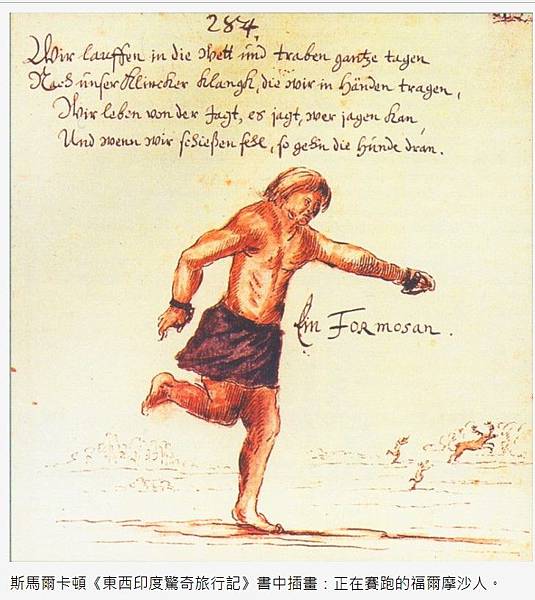 284.
Wir lauffen in die Wett und traben gantze tagen
Nach unser Klincker Klangk, die wir in händen tragen,
Wir leben von der Jagt, es jagt, wer jagen kan,
Und wenn wir schießen fehl, so gehn die Hunde dran.
Ein FORMOSAN.
斯馬爾卡頓《東西印度驚奇旅行記》書中插畫：正在賽跑的福爾摩沙人。